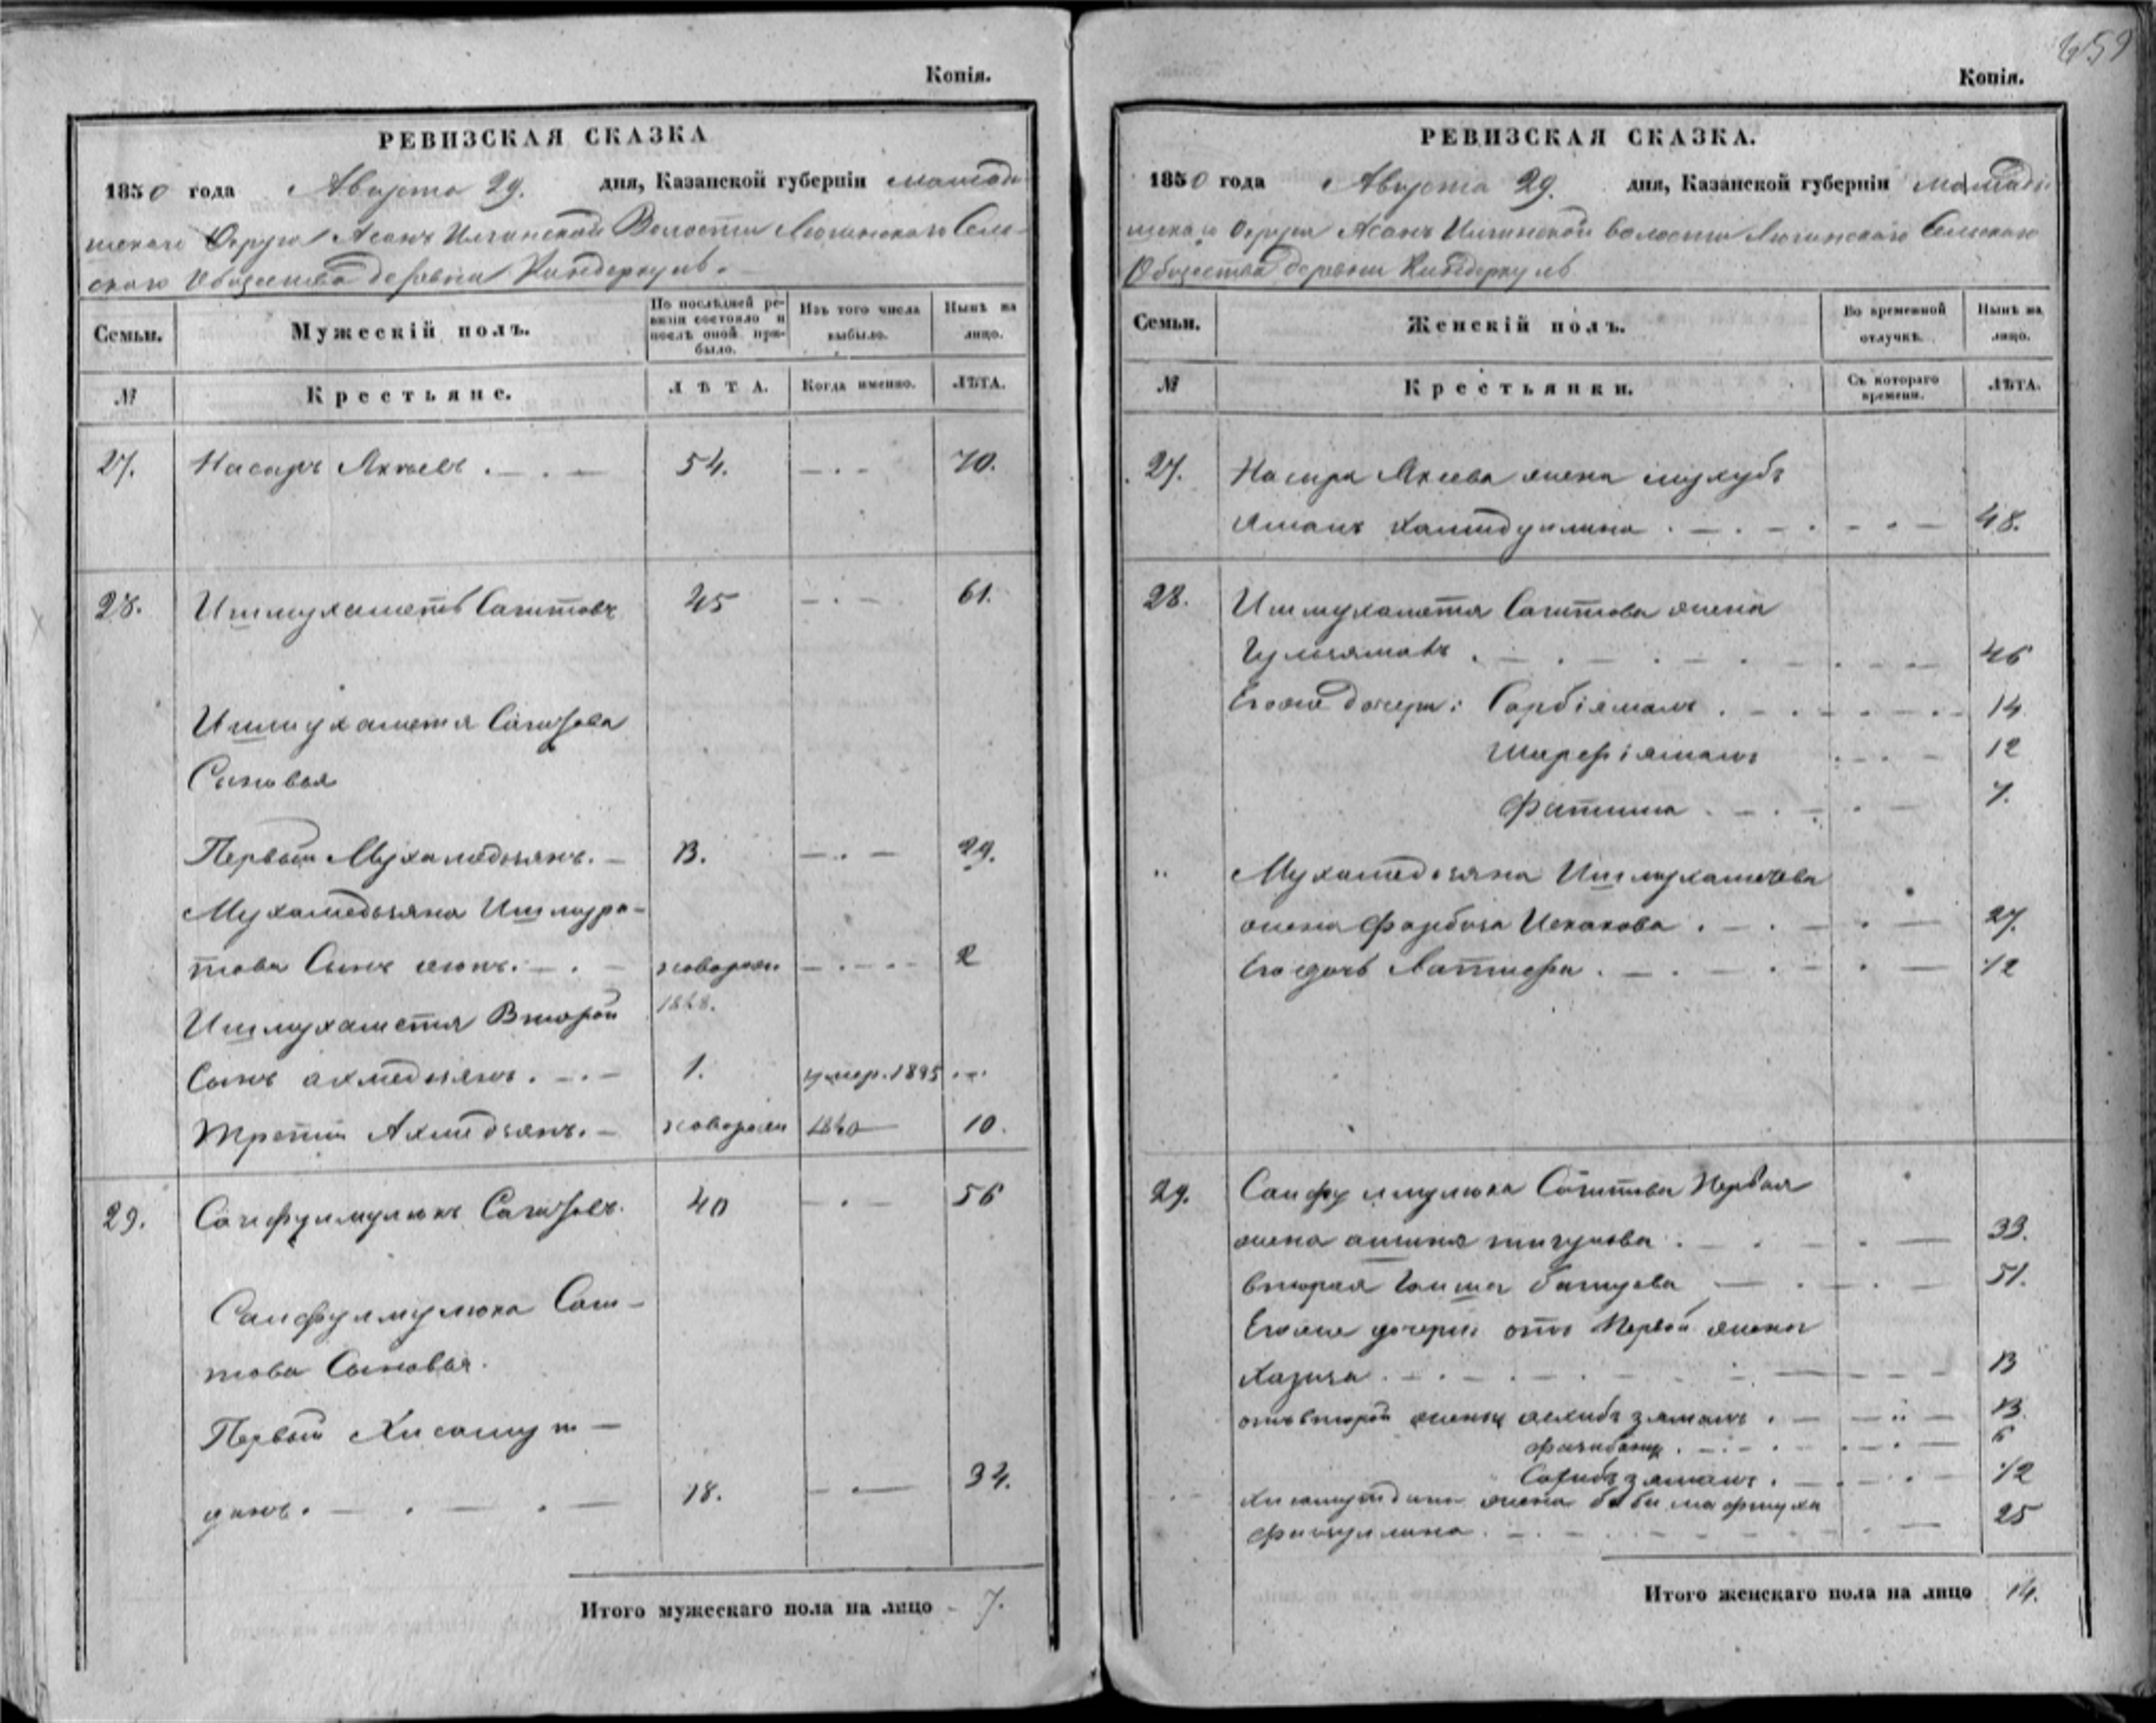 Копія.
РЕВИЗСКАЯ СКАЗКА
1850 года Августа 29. дня, Казанской губерніи мамады
шскаго Округа Асанъ Илгинской Волости Сель-
скаго Общества деревни Киндеркуль.
Семьи. Мужескій полъ. По послѣдней ревизіи состояло и послѣ оной прибыло. Изъ того числа выбыло. Нынѣ на лицо.
№ Крестьяне. ЛѢТА. Когда именно. ЛѢТА.
27. Насыръ Якѣевъ. 54. 70.
28. Ишмухаметь Сагитовъ 45 61.
Ишмухаметя Сагитова
Сыновья
Первый Мухамедзянъ. 13. 29.
Мухамедзяна Ишмура-
това Сынъ новорож 2
Ишмухаметя Второй 1848.
Сынъ ахмедзянъ. 1. умер. 1835
Третій Ахмедзянъ. новорож 1840 10.
29. Сайфулмулюкъ Сагитовъ. 40 56
Сайфулмулюка Саги-
това Сыновья.
Первый Хисамут-
динъ. 18. 34.
Итого мужескаго пола на лицо 7.
659
Копія.
РЕВИЗСКАЯ СКАЗКА.
1850 года Августа 29. дня, Казанской губерніи мамады
шскаго Округа Асанъ Илгинской волости Сельскаго
Общества деревни Киндеркуль
Семьи. Женскій полъ. Во временной отлучкѣ. Нынѣ на лицо.
№ Крестьянки. Съ котораго времени. ЛѢТА.
27. Насыра Якеева жена
48.
28. Ишмухаметя Сагитова жена
46
Егоже дочери: Сарбіямалъ 14
Шарефіямалъ 12
Фатима 7.
Мухамедзяна Ишмухаметева
жена Исхакова 27.
Его дочь 1/2
29. Сайфулмулюка Сагитова Первая
жена 33.
вторая 51.
Егоже дочери отъ Первой жены
Хазиха 13
отъ второй жены 13.
6
1/2
Хисамутдина жена биби мафтуха
25
Итого женскаго пола на лицо 14.